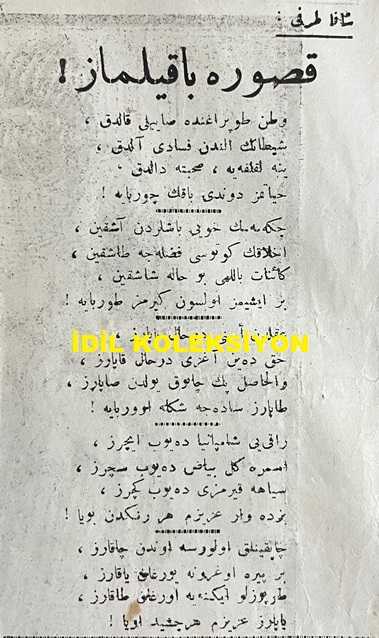 شاقا طرفی :
قصوره باقیلماز !
وطن طوپراغنده صاییلی قالدق ،
شیطانك الندن فسادی آلدق ،
ینه لقلقه‌یه ، صحبته دالدق ،
حیاتمز دوندی باقك چوربایه !
چكه‌مه‌مك خویی باشلردن آشقین ،
اخلاقك كوتوسی فضله‌جه طاشقین ،
كائنات باللهی بو حاله شاشقین ،
بر ایشیمز اولسون كیرمز طوربایه !
درحال یاپارز ،
İDİL KOLEKSİYON
حق دیین آغزی درحال قاپارز ،
والحاصل پك چابوق یولدن صاپارز ،
طاپارز ساده‌جه شكله اوروبایه !
راقی‌یی شامپانیا ده‌یوب ایچرز ،
اسمره گل بیاض ده‌یوب سچرز ،
سیاهه قیرمزی ده‌یوب كچرز ،
بزده وار عزیزم هر رنكدن بویا !
چاپقینلق اولورسه اوندن چاقارز ،
بر پیره اوغرونه یورغان یاقارز ،
ایكنه‌یه اورغان طاقارز ،
یاپارز عزیزم هر چشید اویا !